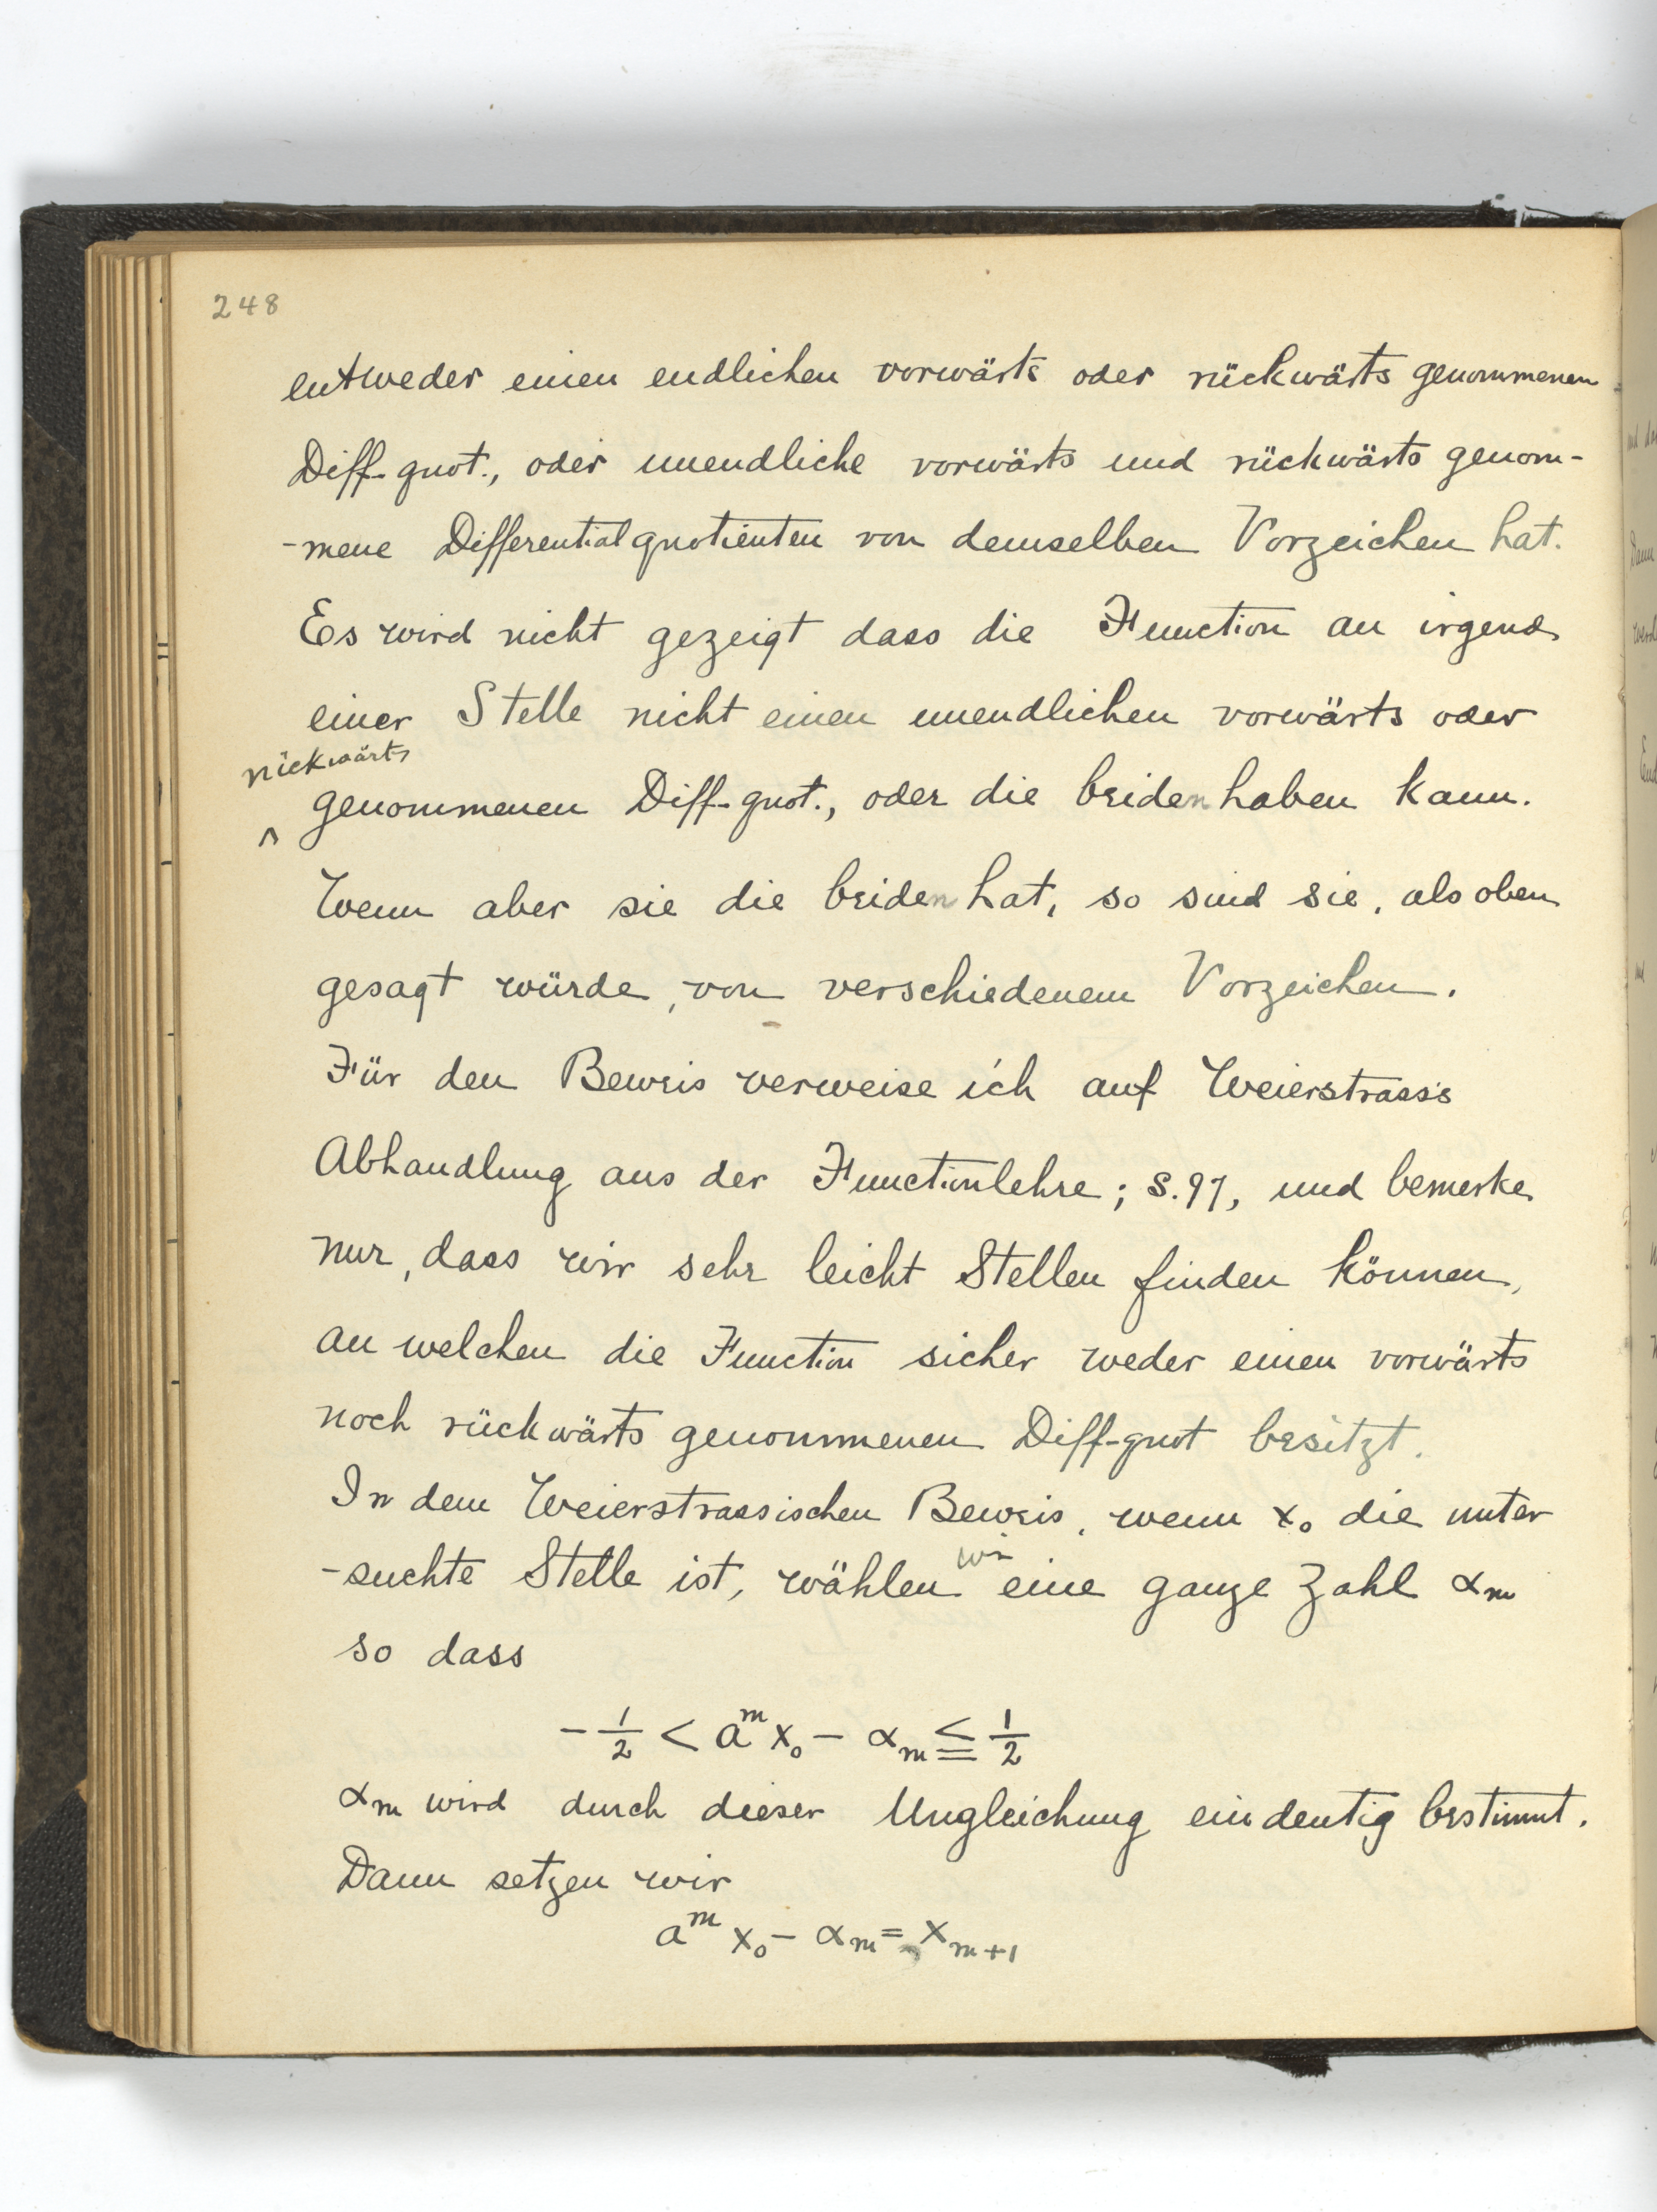 248
entweder einen endlichen vorwärts oder rückwärts genommenen
Diff-quot., oder unendliche vorwärts und rückwärts genom-
-mene Differentialquotienten von demselben Vorzeichen hat.
Es wird nicht gezeigt dass die Function an irgend
einer Stelle nicht einen unendlichen vorwärts oder
rückwärts
^ genommenen Diff-quot., oder die beiden haben kann.
Wenn aber sie die beiden hat, so sind sie, als oben
gesagt würde, von verschiedenem Vorzeichen.
Für den Beweis verweise ich auf Weierstrass's
Abhandlung aus der Functionlehre; S.97, und bemerke
nur, dass wir sehr leicht Stellen finden können,
an welchen die Function sicher weder einen vorwärts
noch rückwärts genommenen Diff-quot besitzt.
In dem Weierstrassischen Beweis, wenn x₀ die unter
-suchte Stelle ist, wählen wir eine ganze Zahl αₘ
so dass
-½ < aᵐx₀ - αₘ ≦ ½
αₘ wird durch dieser Ungleichung eindeutig bestimmt.
Dann setzen wir
aᵐx₀ - αₘ = xₘ₊₁